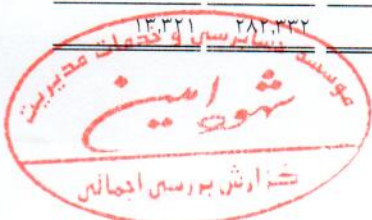 ۱۳,۳۲۱ ۲۸۲,۳۳۲
موسسه حسابرسی و خدمات مدیریت
شهود امین
گزارش بررسی اجمالی